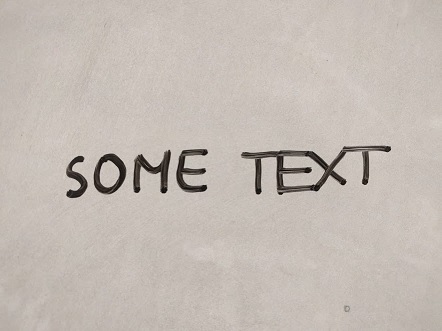 SOME TEXT